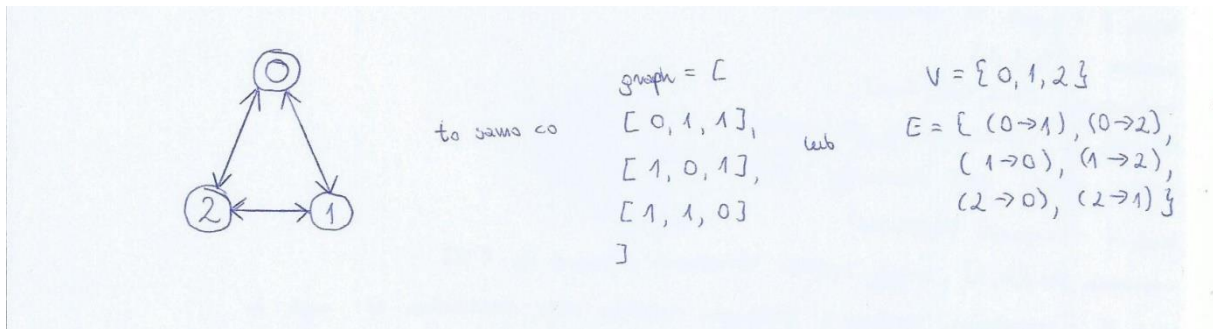 0
2
1
to samo co
graph = [
[0, 1, 1],
[1, 0, 1],
[1, 1, 0]
]
lub
V = {0, 1, 2}
E = { (0→1), (0→2),
(1→0), (1→2),
(2→0), (2→1) }